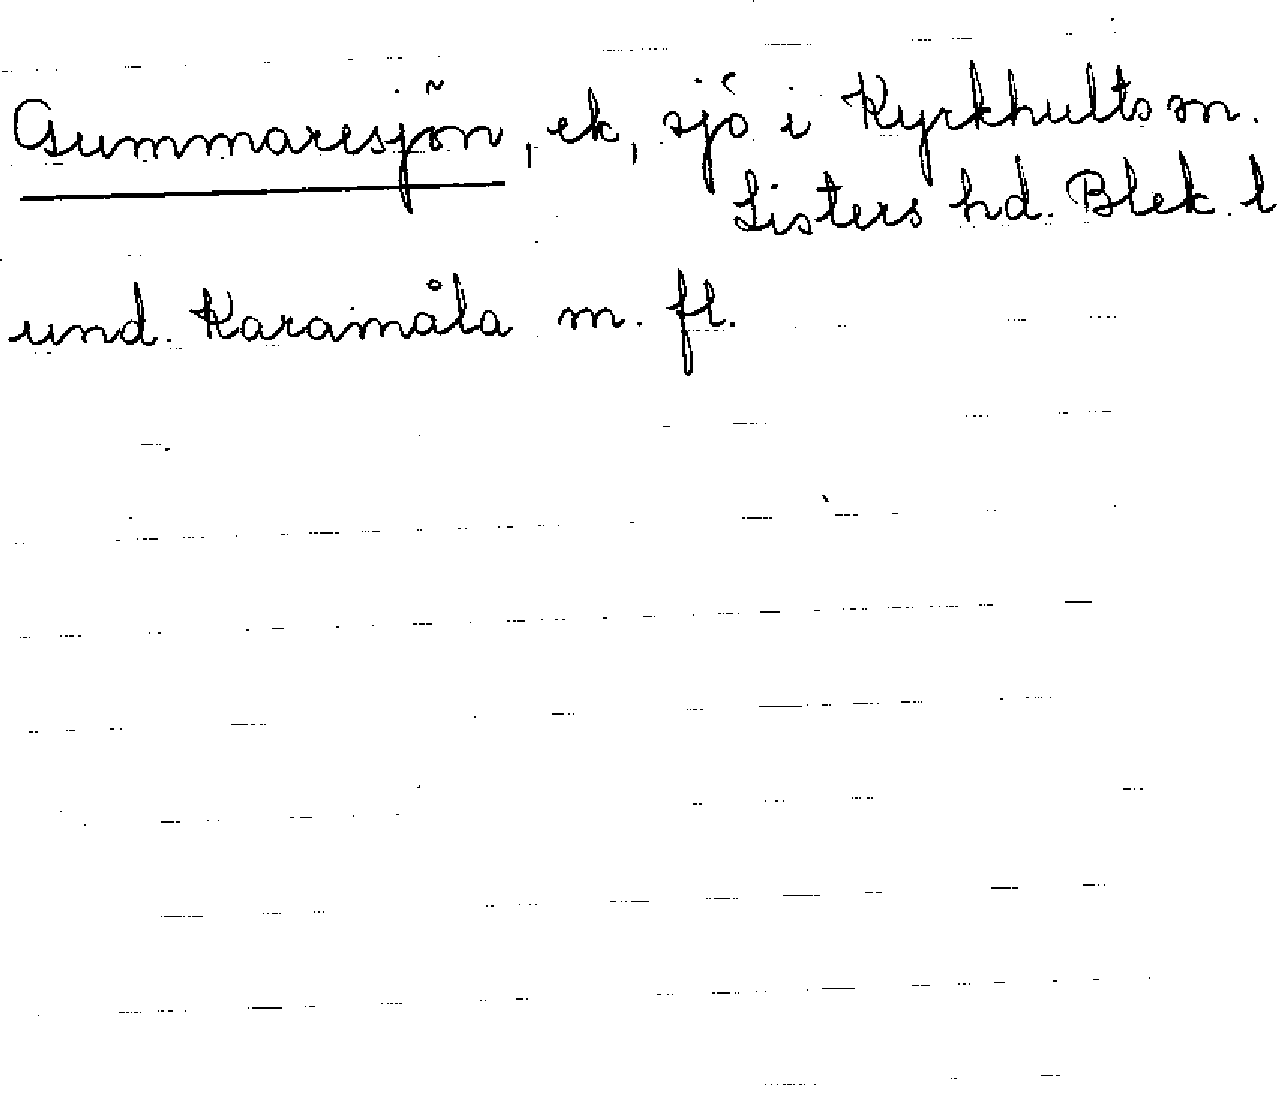 Gummaresjön, ek, sjö i Kyrkhults sn.
Listers hd. Blek. l
und. Karamåla m. fl.